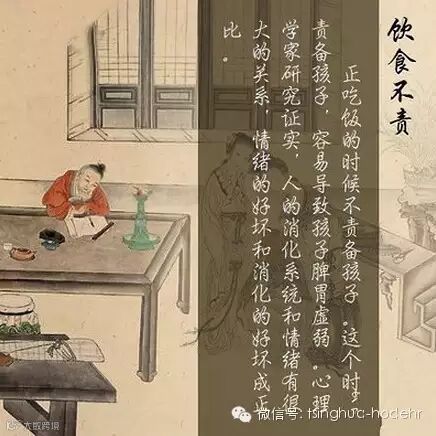 饮食不责
正吃饭的时候不责备孩子。这个时
责备孩子,容易导致孩子脾胃虚弱。心理
学家研究证实,人的消化系统和情绪有很
大的关系,情绪的好坏和消化的好坏成正
比。
微信号: tsinghuc-hodehr
大数跨境